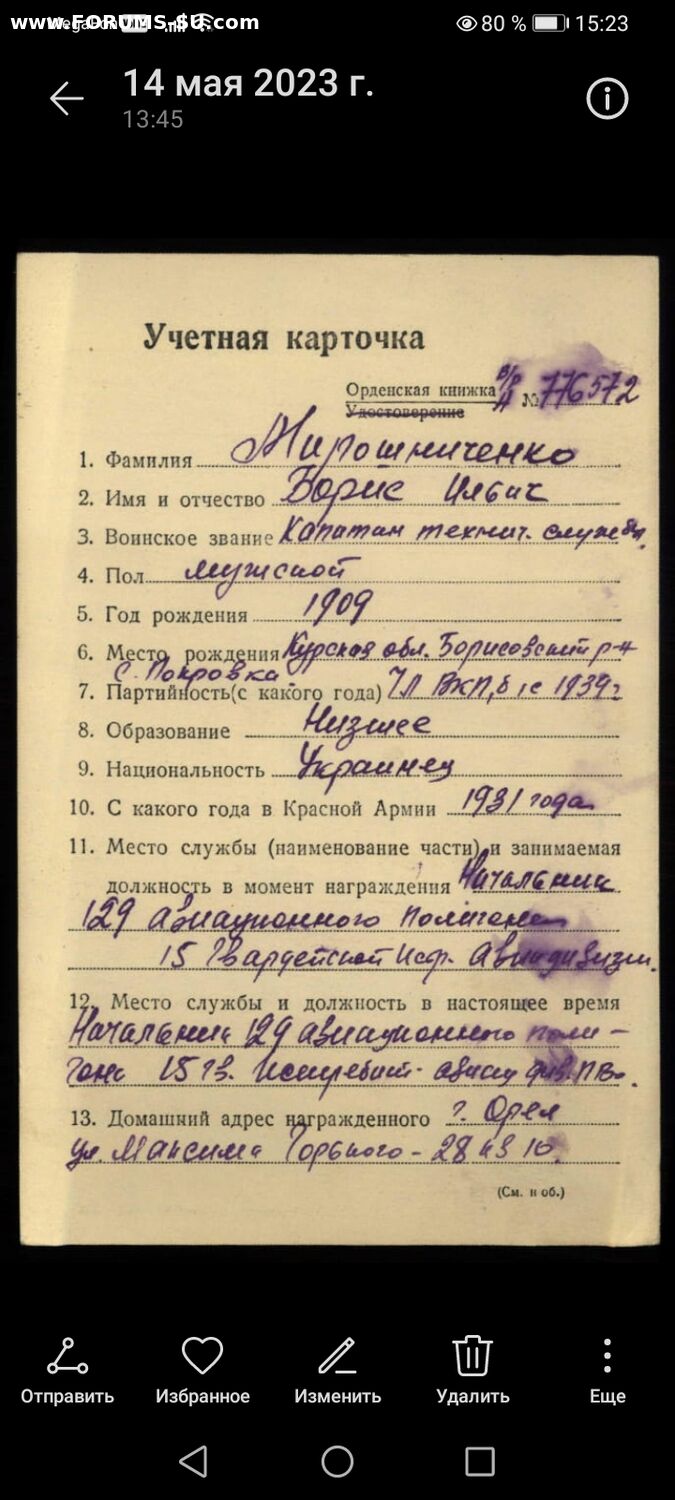 www.FORUMS-SU.com
80 % 15:23
14 мая 2023 г.
13:45
Учетная карточка
Орденская книжка в/р А № 776572
Удостоверение
1. Фамилия Мирошниченко
2. Имя и отчество Борис Ильич
3. Воинское звание Капитан технич. службы.
4. Пол мужской
5. Год рождения 1909
6. Место рождения Курская обл. Борисовский р-н
с. Покровка
7. Партийность (с какого года) ЧЛ ВКП/б/с 1939 г
8. Образование Низшее
9. Национальность Украинец
10. С какого года в Красной Армии 1931 года
11. Место службы (наименование части) и занимаемая
должность в момент награждения Начальник
129 авиационного полигона
15 Гвардейской Истр. Авиадивизии.
12. Место службы и должность в настоящее время
Начальник 129 авиационного поли-
гона 15 гв. Истребит. авиац див. ПВО.
13. Домашний адрес награжденного г. Орел
ул. Максима Горького - 28 кв 10.
(См. н об.)
Отправить Избранное Изменить Удалить Еще